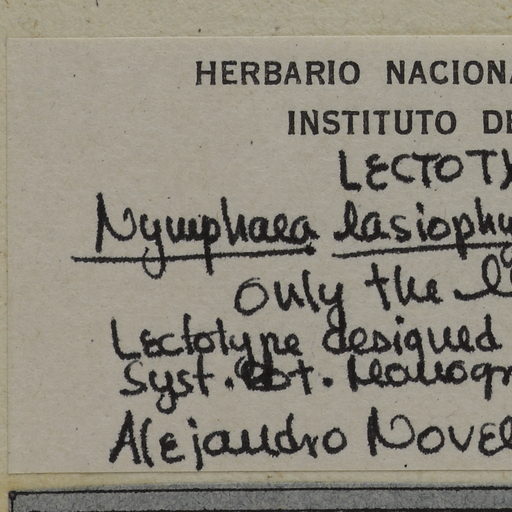 HERBARIO NACIONA
INSTITUTO DE
LECTOTY
Nymphaea lasiophy
Only the l
Lectotype designed
Syst. Bot. Monogr
Alejandro Novel